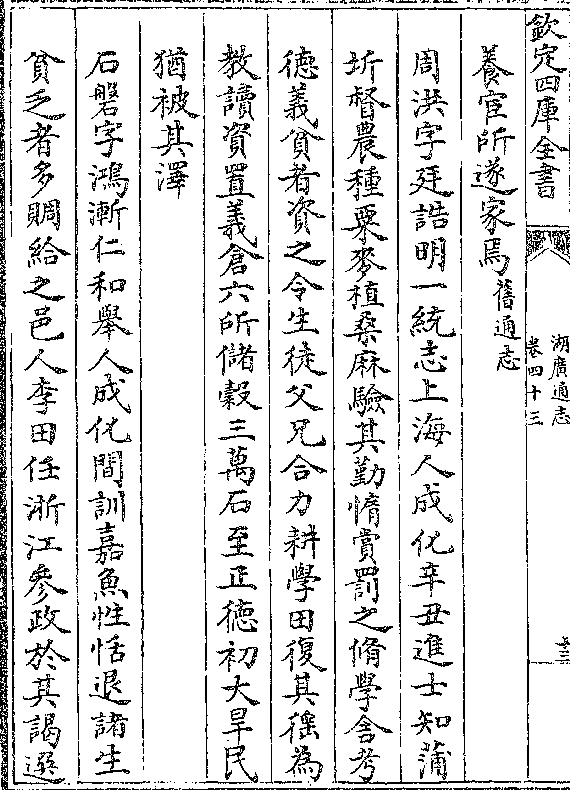 欽定四庫全書
湖廣通志
卷四十三
養官所遂家焉舊通志
周洪字廷誥明一統志上海人成化辛丑進士知蒲
圻督農種粟麥植桑麻驗其勤惰賞罰之脩學舍考
德義貧者資之令生徒父兄合力耕學田復其徭為
教讀資置義倉六所儲穀三萬石至正德初大旱民
猶被其澤
石磐字鴻漸仁和舉人成化間訓嘉魚性恬退諸生
貧乏者多賙給之邑人李田任浙江參政於其謁選